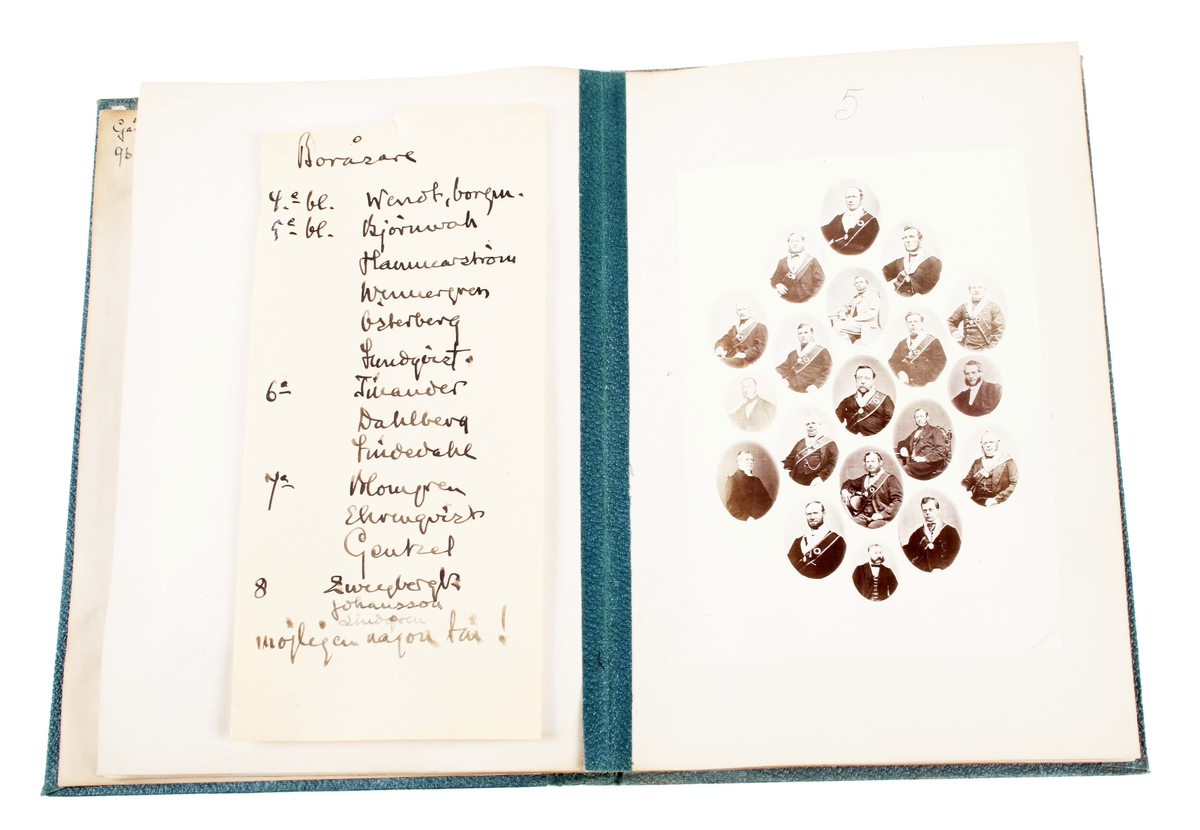 Boråsare
4.e bl. Wendt, borgm.
5e bl. Björnwall
Hammarström
Wennergren
Österberg
Lundqvist.
6e Tinander
Dahlberg
Lindedahl
7e Blomgren
Ehrenqvist
Gentzel
8 Zweigbergk
Johansson
Lindgren
möjligen någon till!
5